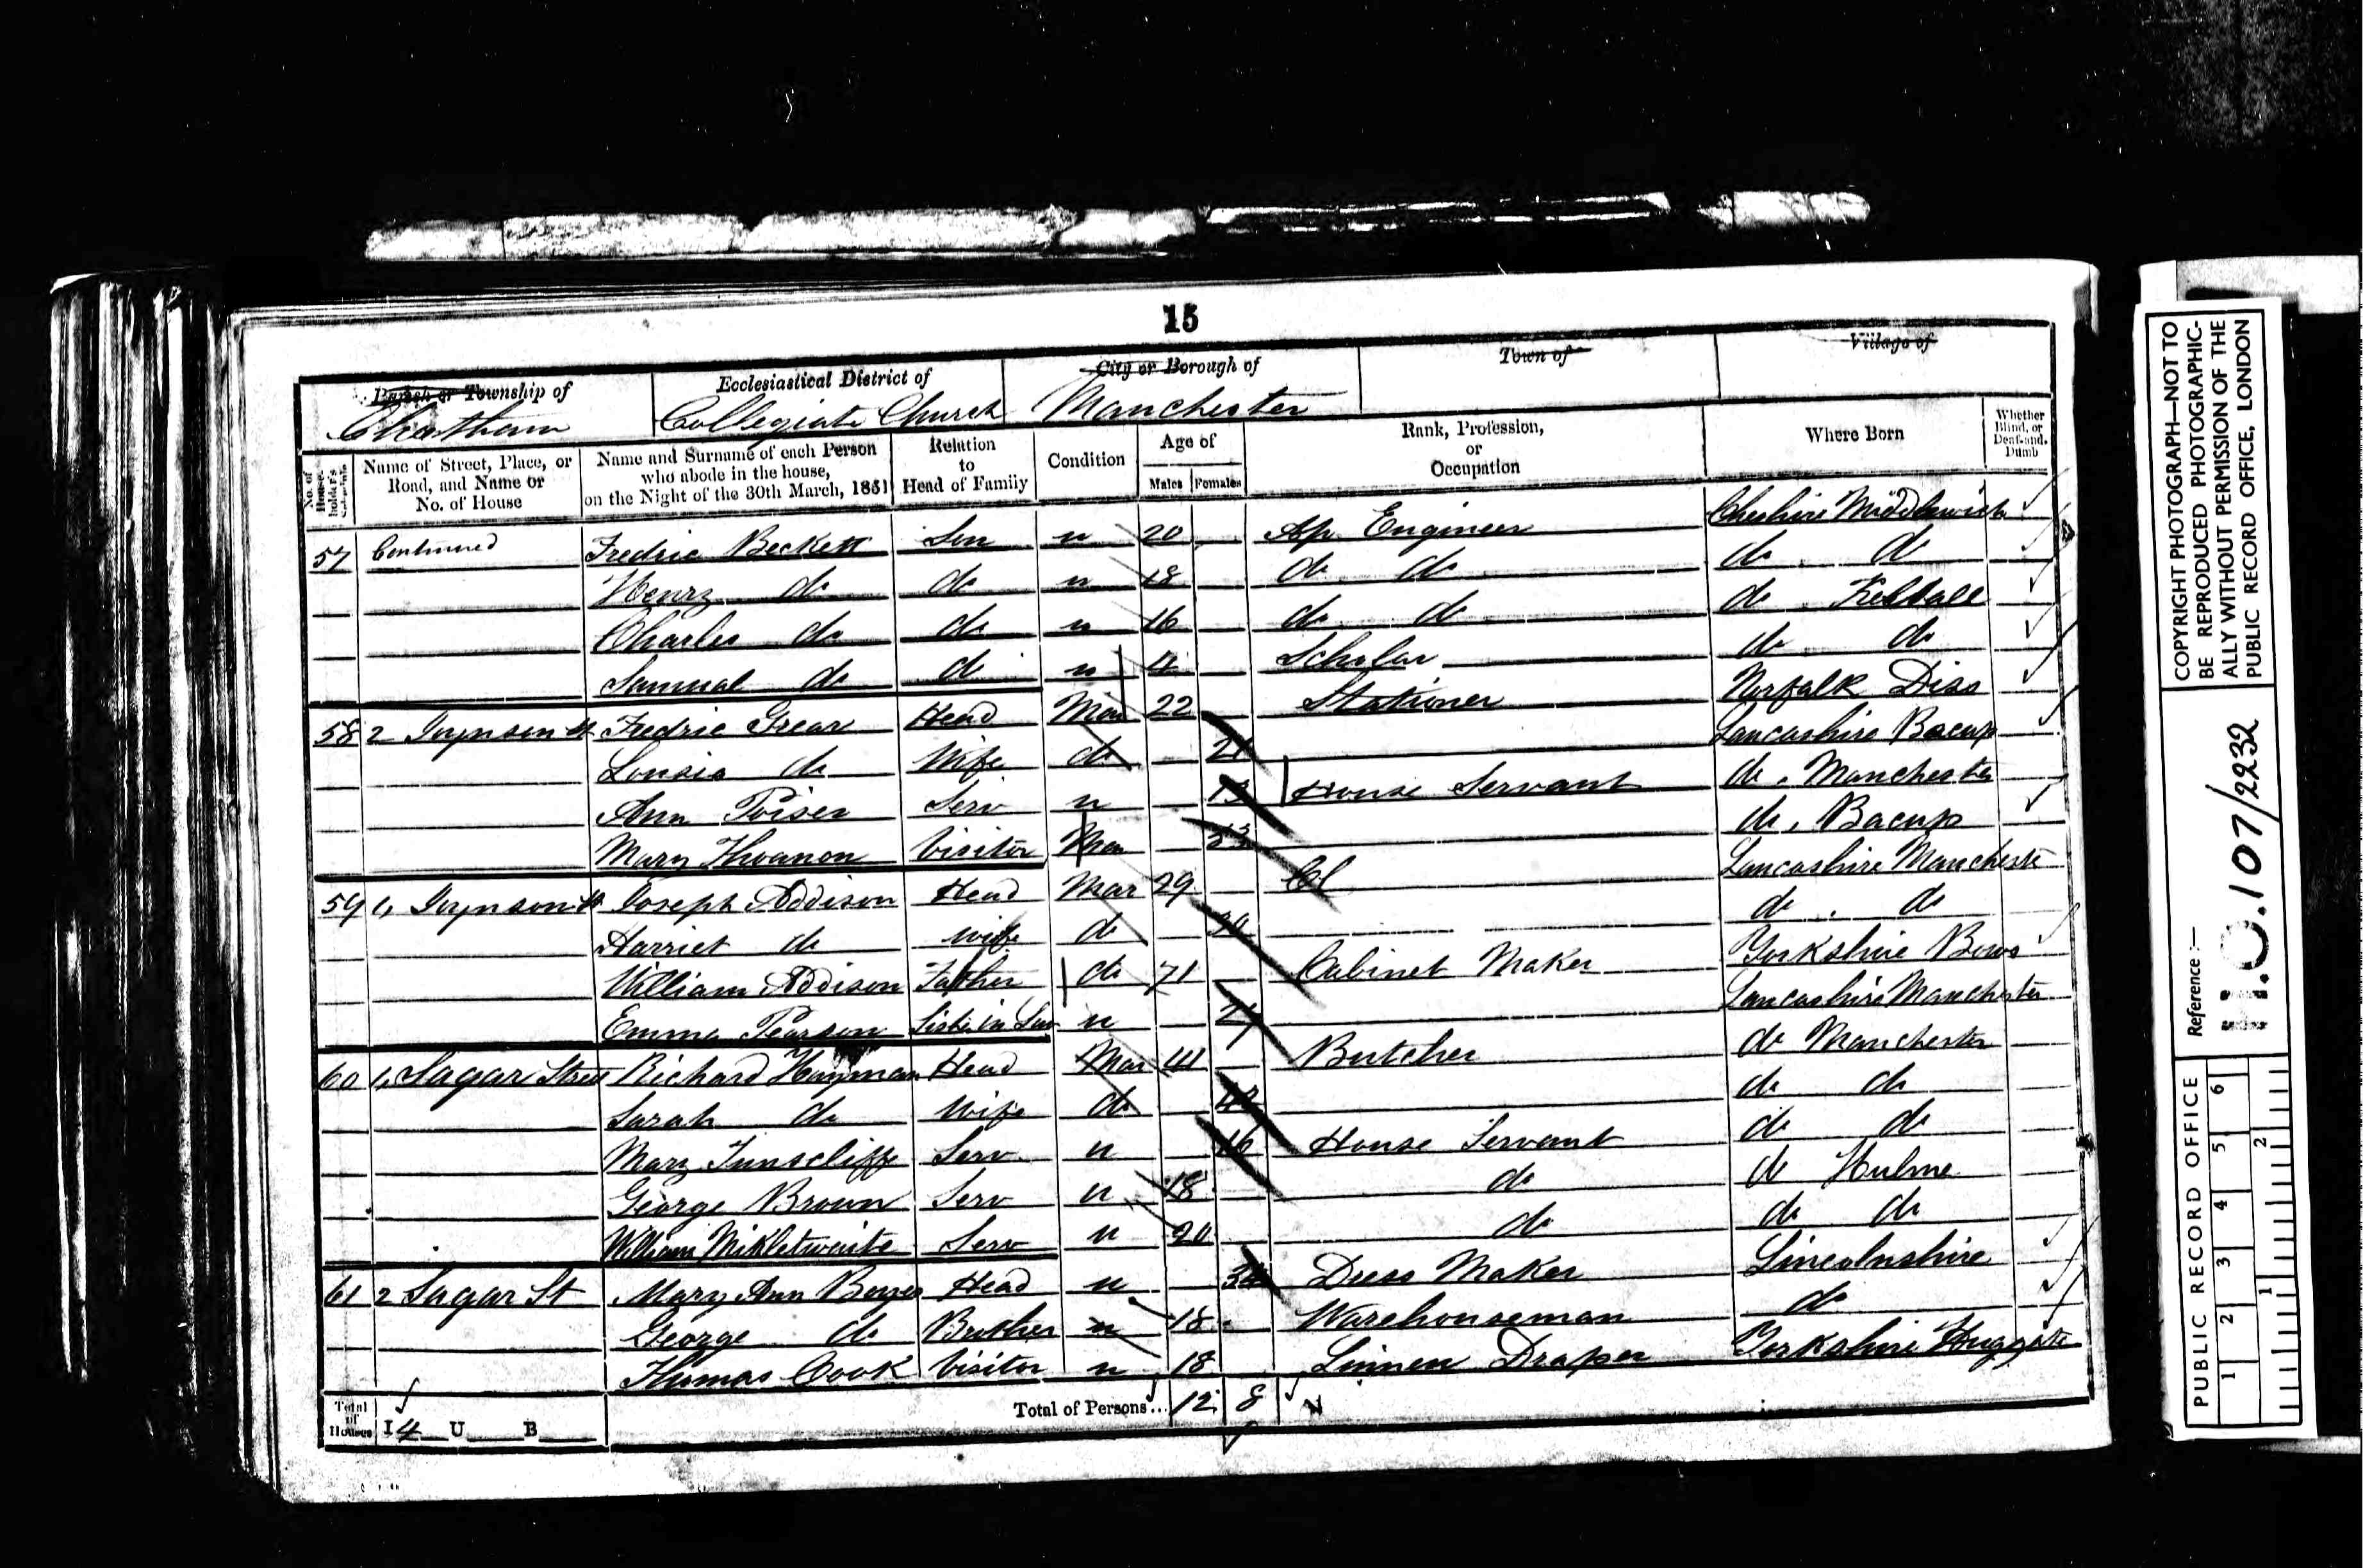 15
Parish or Township of Ecclesiastical District of City or Borough of Town of Village of
Cheetham Collegiate Church Manchester
No. of House-holder's Name of Street, Place, or Road, and Name or No. of House Name and Surname of each Person who abode in the house, on the Night of the 30th March, 1851 Relation to Head of Family Condition Age of Males Females Rank, Profession, or Occupation Where Born Whether Blind, or Deaf-and-Dumb
57 Continued Fredric Beckett Son u 20 Ap Engineer Cheshire Middlewich
Henry do do u 18 do do do do
Charles do do u 16 do do do Kelsall
Samual do do u Scholar do do
58 2 Joynson St Fredric Frear Head Mar 22 Stationer Norfalk Diss
Louisa do Wife do 21 Lancashire Bacup
Ann Poiser Serv u 13 House Servant do Manchester
Mary Visitor Mar do Bacup
59 4 Joynson St Joseph Addison Head Mar 29 Lancashire Manchester
Harriet do Wife do do do
William Addison Father do 71 Cabinet Maker Yorkshire Bows
Emma Pearson Sister in Law u Lancashire Manchester
60 4 Sagar Street Richard Hayman Head Mar 41 Butcher do Manchester
Sarah do Wife do do do
Mary Tunscliffe Serv u 16 House Servant do do
George Brown Serv u 18 do do Hulme
William Mikletwaite Serv u 20 do do do
61 2 Sagar St Mary Ann Head u Dress Maker Lincolnshire
George do Brother u 18 Warehouseman do
Thomas Cook Visitor u 18 Linnen Draper Yorkshire Huggate
Total of Houses I 4 U B Total of Persons... 12 8
COPYRIGHT PHOTOGRAPH—NOT TO
BE REPRODUCED PHOTOGRAPHIC-
ALLY WITHOUT PERMISSION OF THE
PUBLIC RECORD OFFICE, LONDON
Reference:—
H.O.107/2232
PUBLIC RECORD OFFICE
1 2 3 4 5 6
1 2